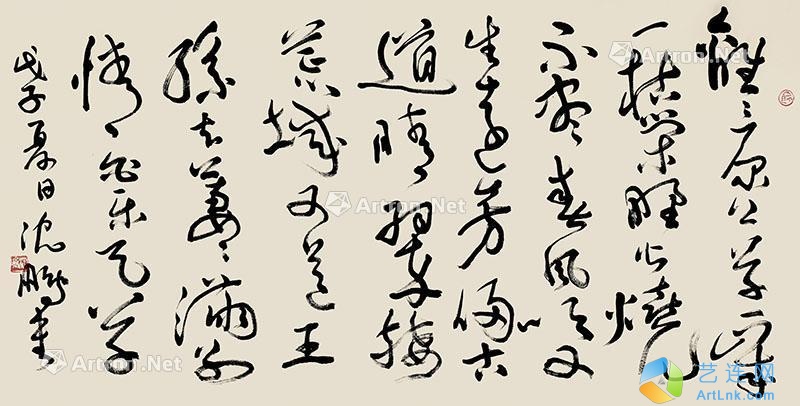 離〻原上草一歲
一枯榮野火燒
不盡春風吹又
生遠芳侵古
道晴翠接
荒城又送王
孫去萋〻滿別
情白樂天草
戊子夏日沈鵬書
Artron.Net
Artron.Net
Artron.Net
Artron.Net
Artron.Net
艺连网
ArtLnk.com